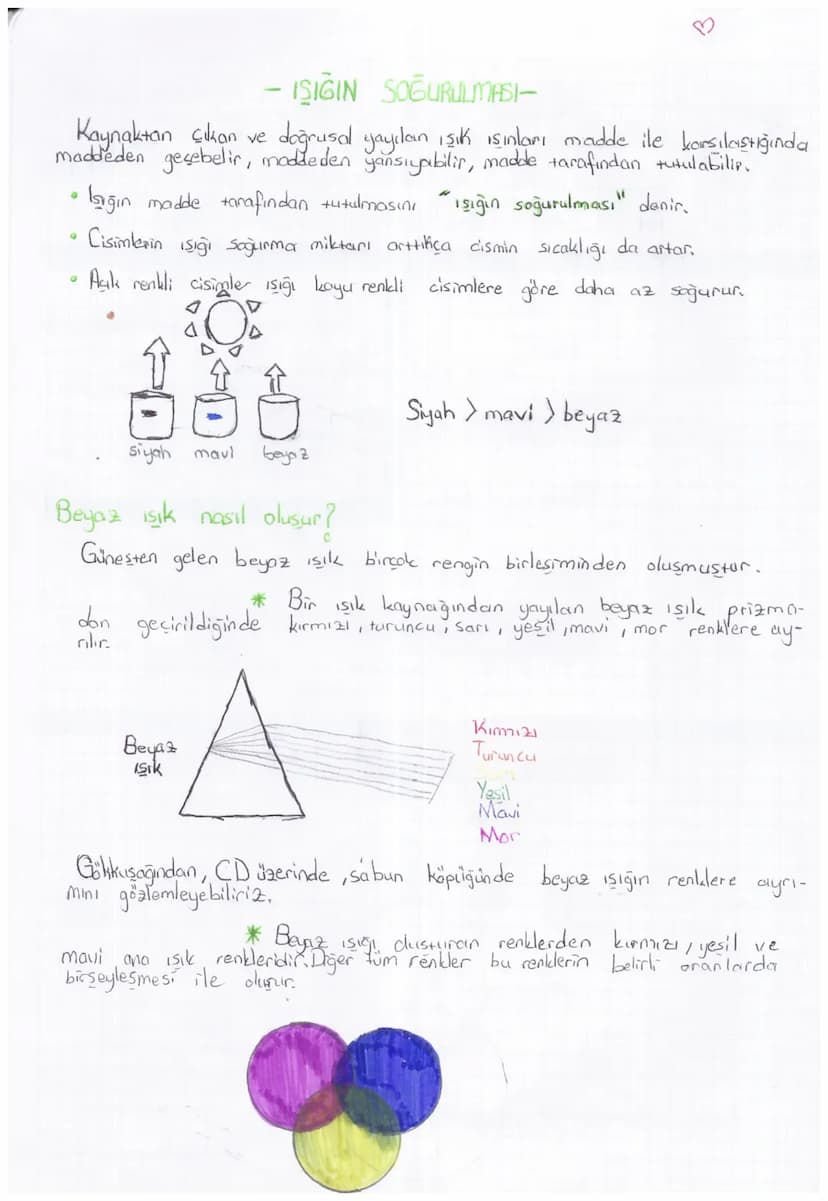 - IŞIĞIN SOĞURULMASI-
Kaynaktan çıkan ve doğrusal yayılan ışık ışınları madde ile karşılaştığında
maddeden geçebilir, maddeden yansıyabilir, madde tarafından tutulabilir.
• Işığın madde tarafından tutulmasını "ışığın soğurulması" denir.
• Cisimlerin ışığı soğurma miktarı arttıkça cismin sıcaklığı da artar.
• Açık renkli cisimler ışığı koyu renkli cisimlere göre daha az soğurur.
siyah mavi beyaz
Siyah > mavi > beyaz
Beyaz ışık nasıl oluşur?
Güneşten gelen beyaz ışık birçok rengin birleşiminden oluşmuştur.
* Bir ışık kaynağından yayılan beyaz ışık prizma-
dan geçirildiğinde kırmızı, turuncu, sarı, yeşil, mavi, mor renklere ay-
rılır.
Beyaz
ışık
Kırmızı
Turuncu
Sarı
Yeşil
Mavi
Mor
Gökkuşağından, CD üzerinde, sabun köpüğünde beyaz ışığın renklere ayrı-
mını gözlemleyebiliriz.
* Beyaz ışığı oluşturan renklerden kırmızı, yeşil ve
mavi ana ışık renkleridir. Diğer tüm renkler bu renklerin belirli oranlarda
birşeyleşmesi ile oluşur.